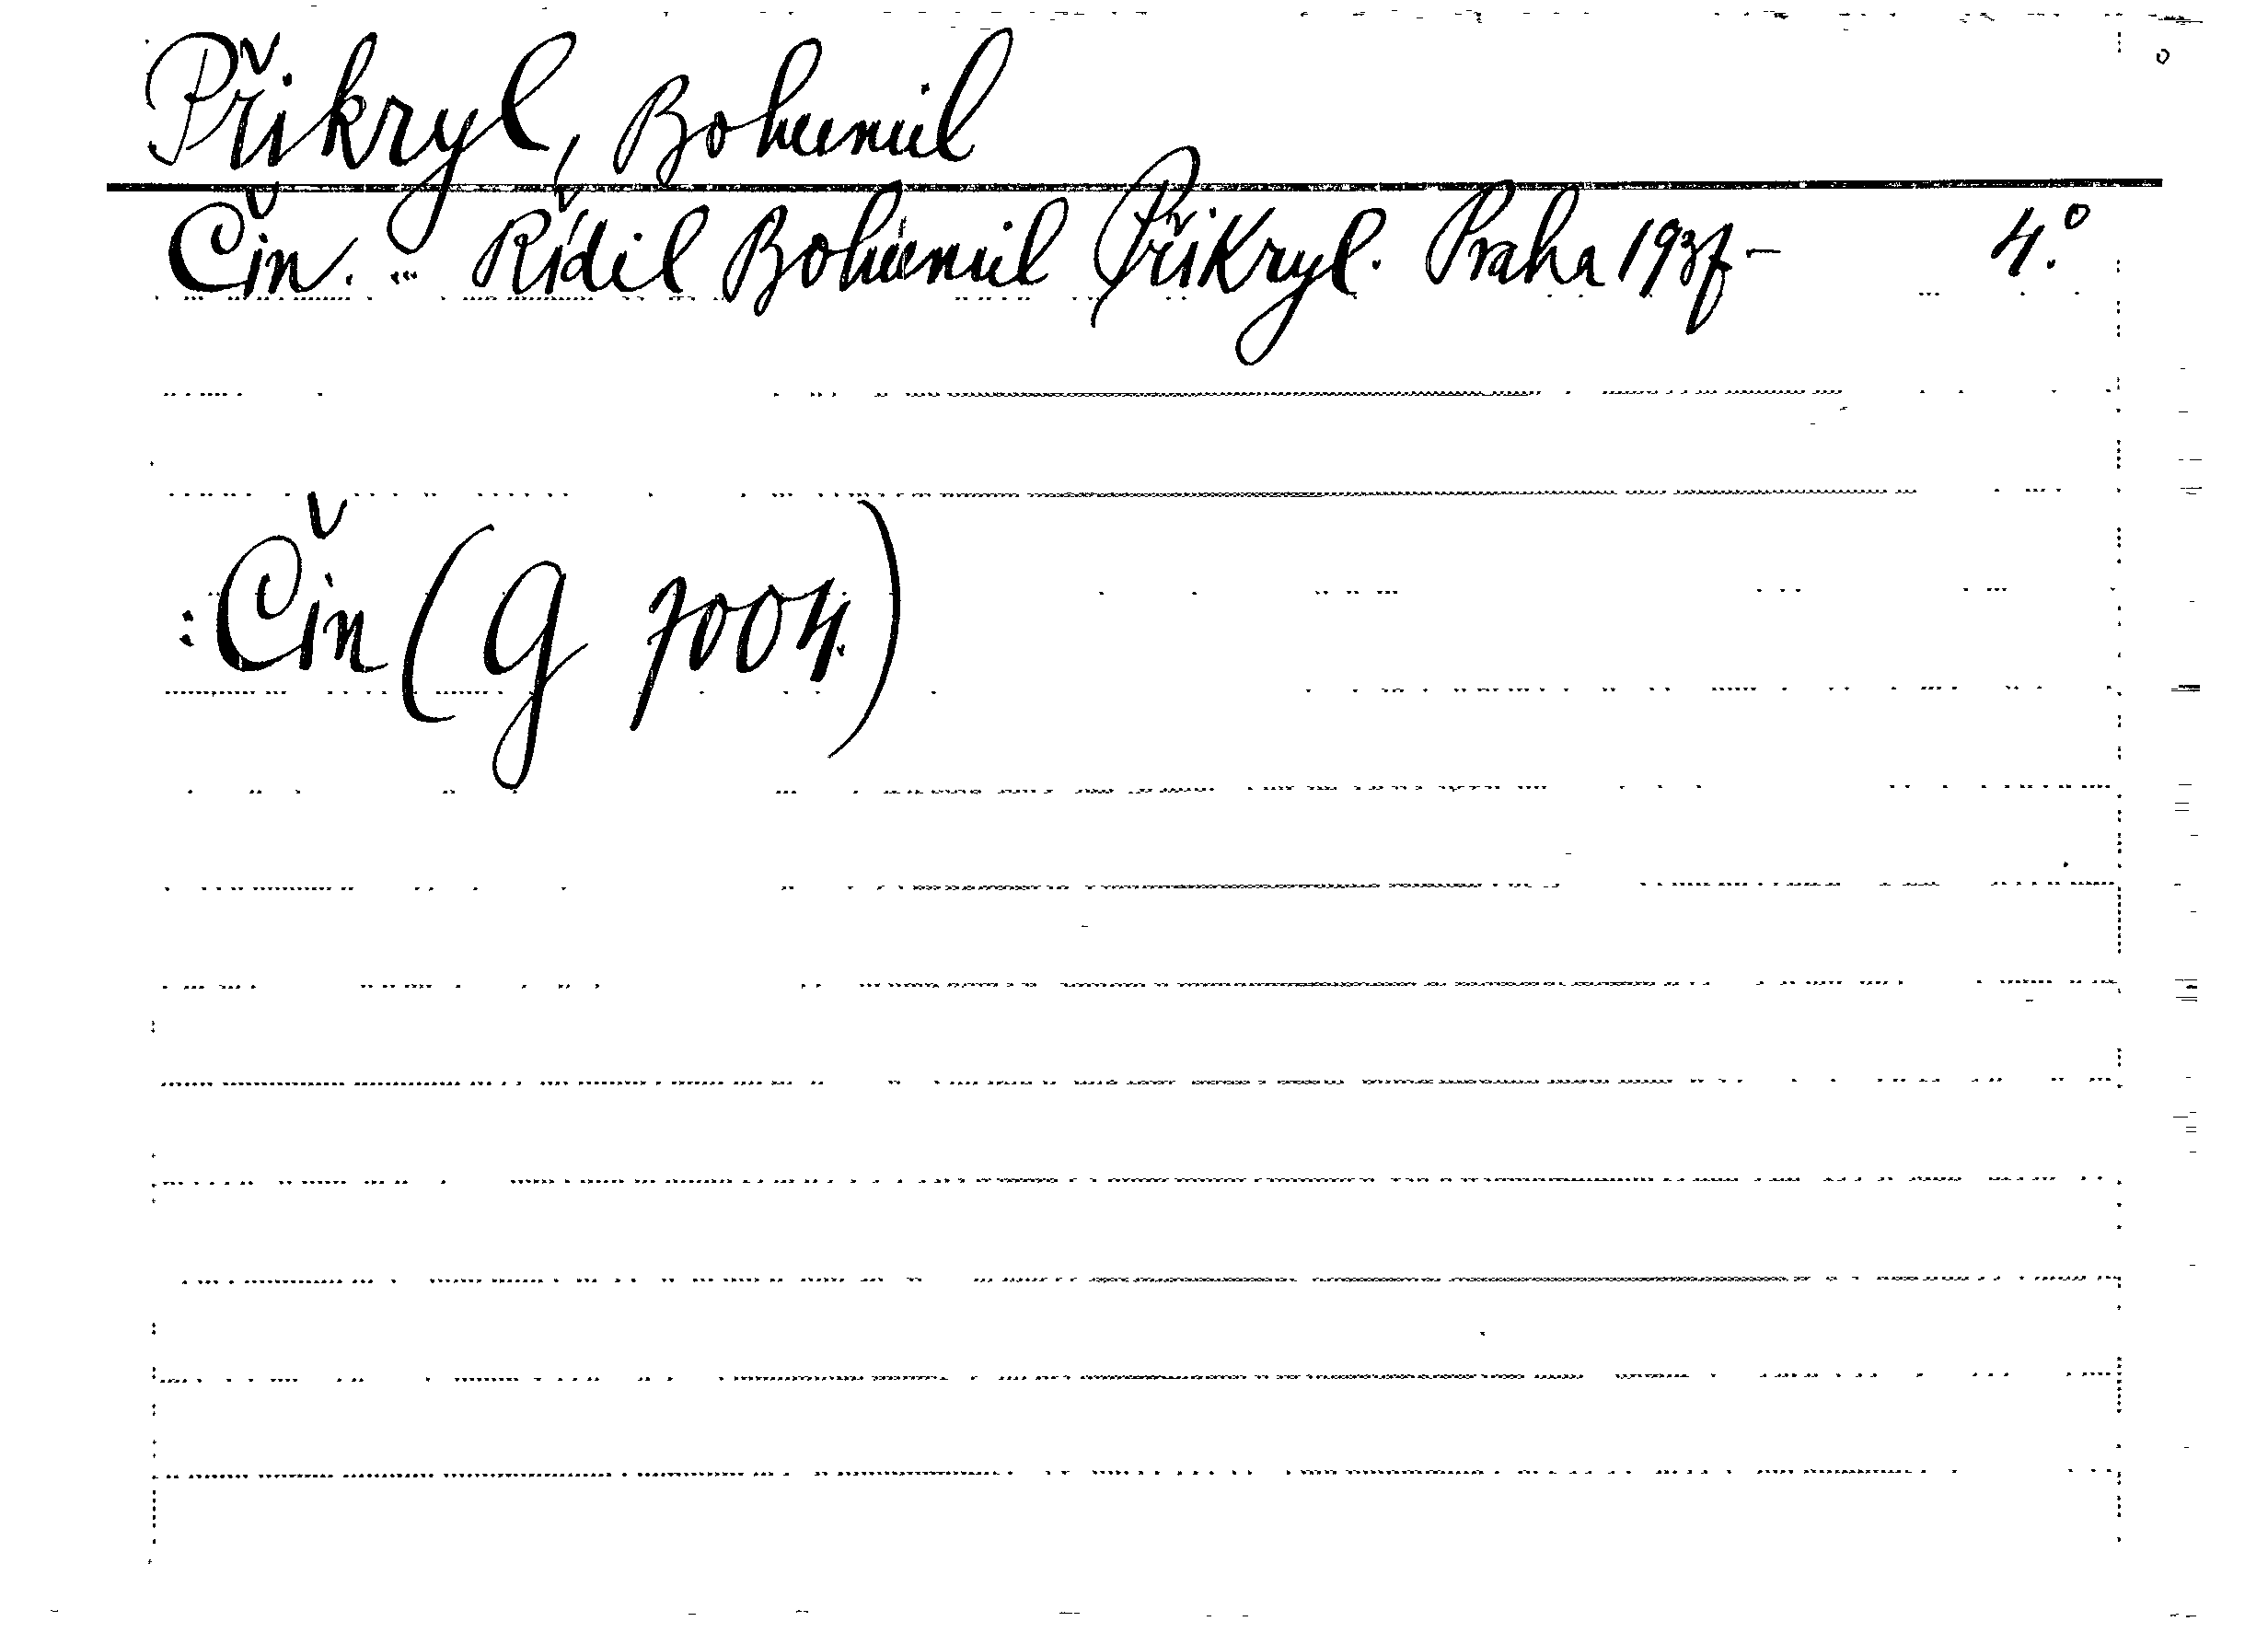 Přikryl, Bohumil
Čin. ... Řídil Bohumil Přikryl. Praha 1937- 4.°
: Čin (G 7004.)